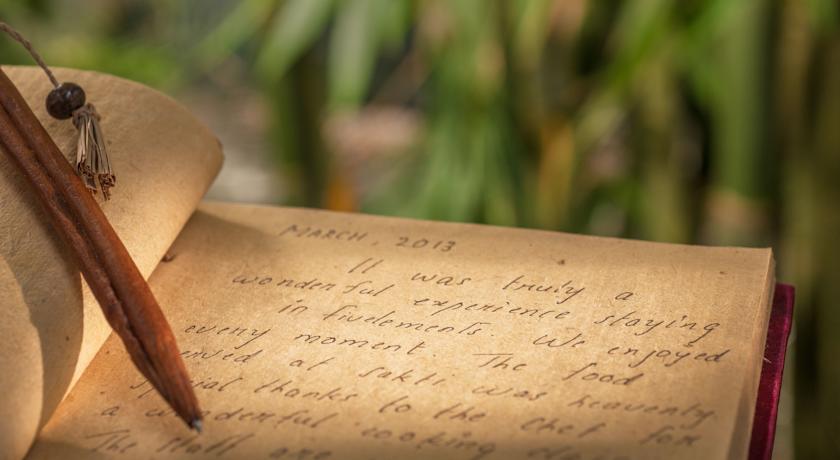 MARCH, 2013
It was truly a
wonderful experience staying
in fivelements. We enjoyed
every moment. The food
served at sakti was heavenly
special thanks to the chef for
a wonderful cooking
The staff are